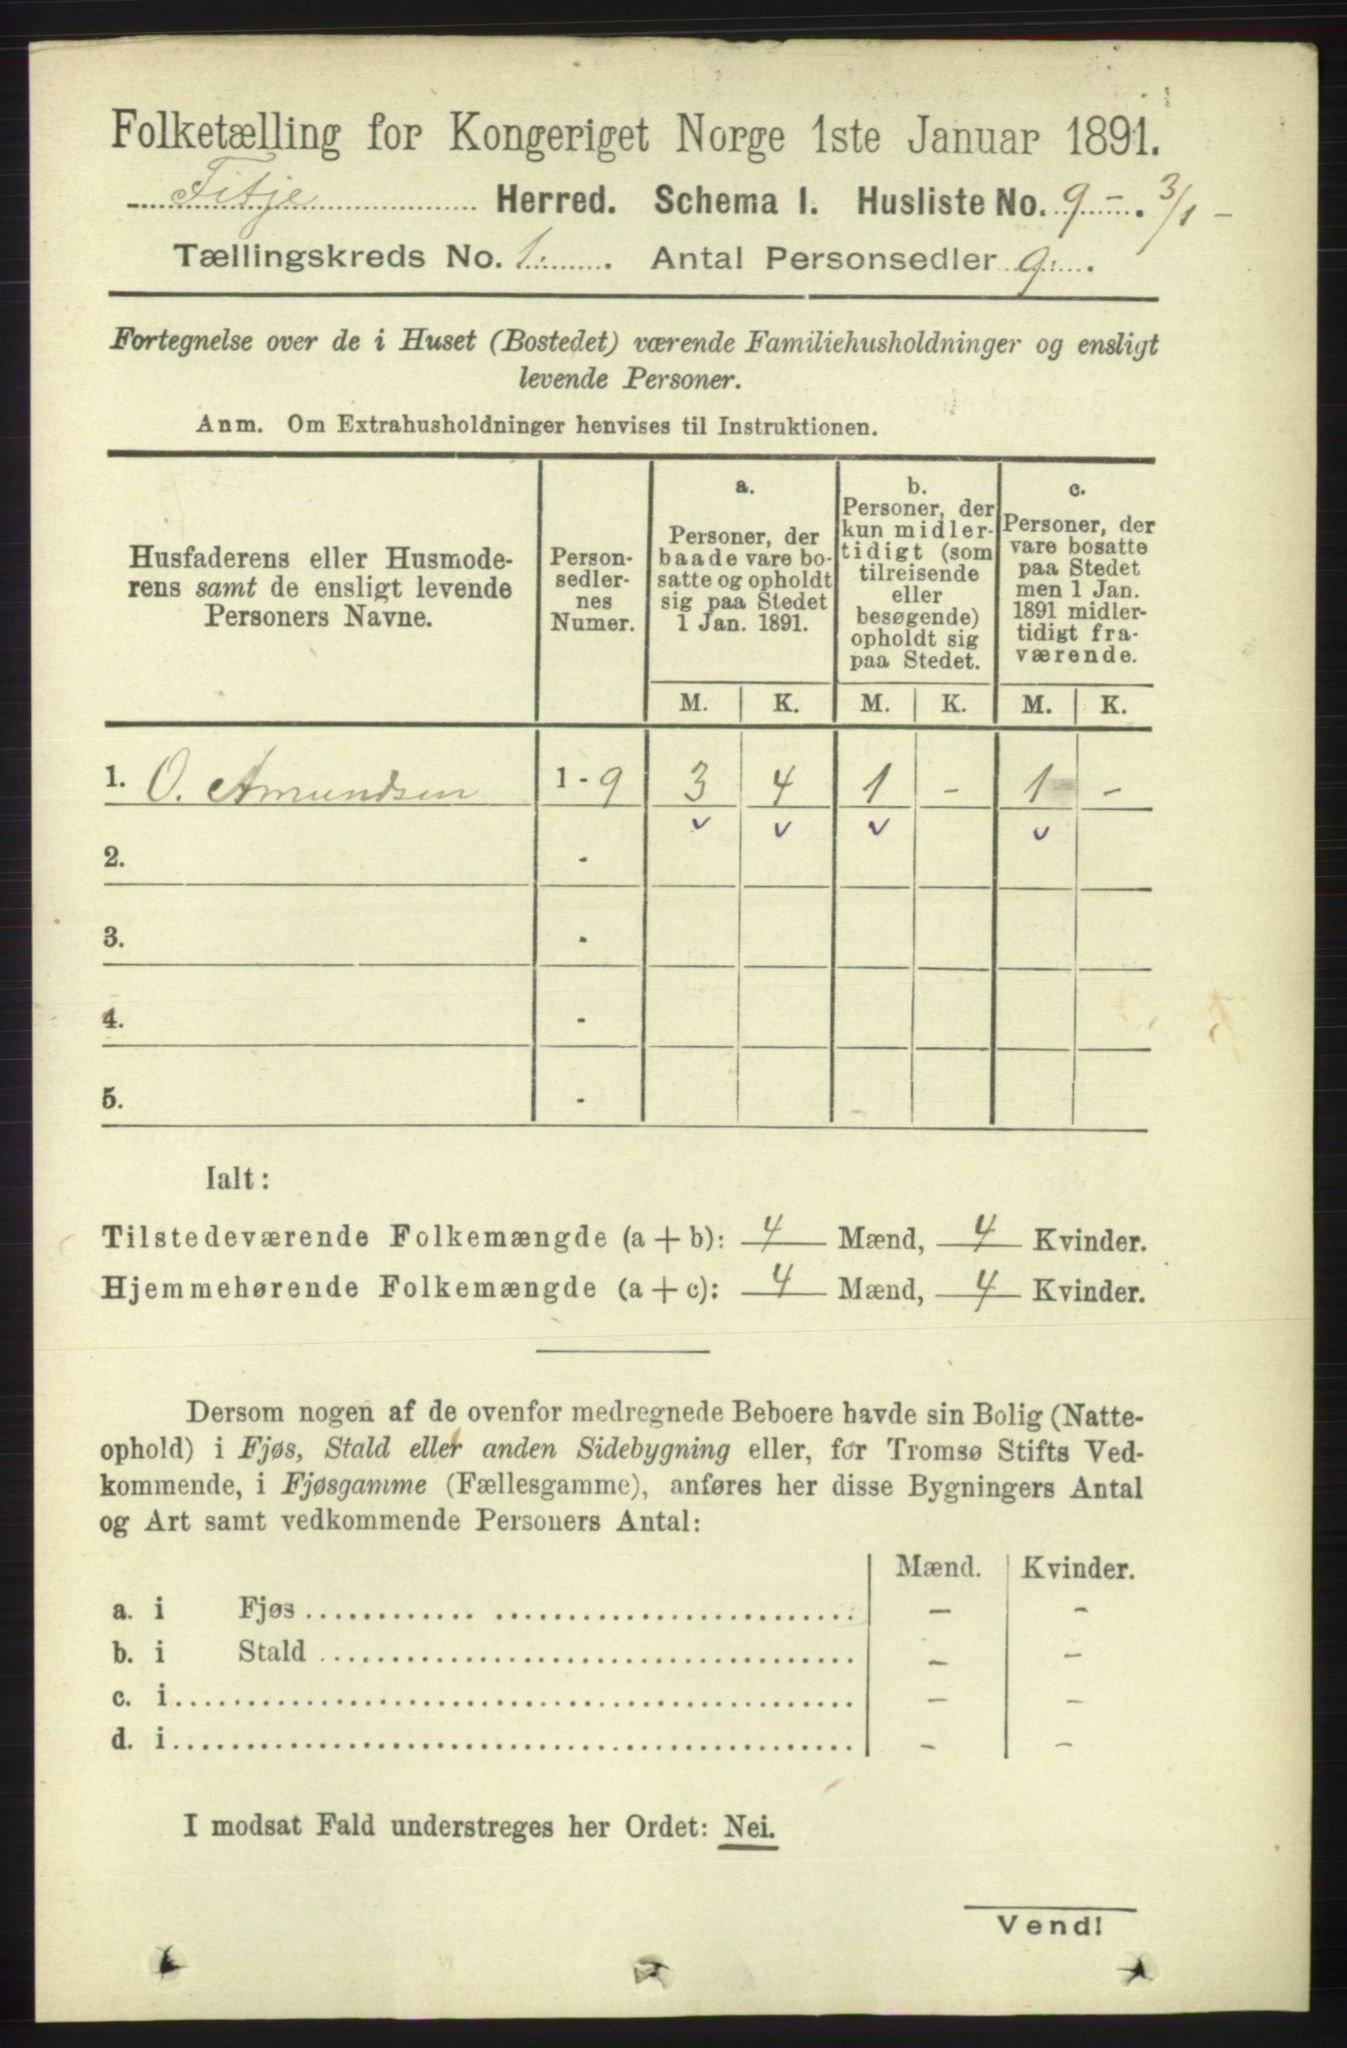 Folketælling for Kongeriget Norge 1ste Januar 1891.
Fitje Herred. Schema I. Husliste No. 9 - . 3/1 -
Tællingskreds No. 1. Antal Personsedler 9.
Fortegnelse over de i Huset (Bostedet) værende Familiehusholdninger og ensligt
levende Personer.
Anm. Om Extrahusholdninger henvises til Instruktionen.
Husfaderens eller Husmode-
rens samt de ensligt levende
Personers Navne.
Person-
sedler-
nes
Numer.
a.
Personer, der
baade vare bo-
satte og opholdt
sig paa Stedet
1 Jan. 1891.
b.
Personer, der
kun midler-
tidigt (som
tilreisende
eller
besøgende)
opholdt sig
paa Stedet.
c.
Personer, der
vare bosatte
paa Stedet
men 1 Jan.
1891 midler-
tidigt fra-
værende.
M. K. M. K. M. K.
1. O. Amundsen 1 - 9 3 4 1 - 1 -
2. -
3. -
4. -
5. -
Ialt:
Tilstedeværende Folkemængde (a + b): 4 Mænd, 4 Kvinder.
Hjemmehørende Folkemængde (a + c): 4 Mænd, 4 Kvinder.
Dersom nogen af de ovenfor medregnede Beboere havde sin Bolig (Natte-
ophold) i Fjøs, Stald eller anden Sidebygning eller, for Tromsø Stifts Ved-
kommende, i Fjøsgamme (Fællesgamme), anføres her disse Bygningers Antal
og Art samt vedkommende Personers Antal:
Mænd. Kvinder.
a. i Fjøs - -
b. i Stald - -
c. i - -
d. i - -
I modsat Fald understreges her Ordet: Nei.
Vend!